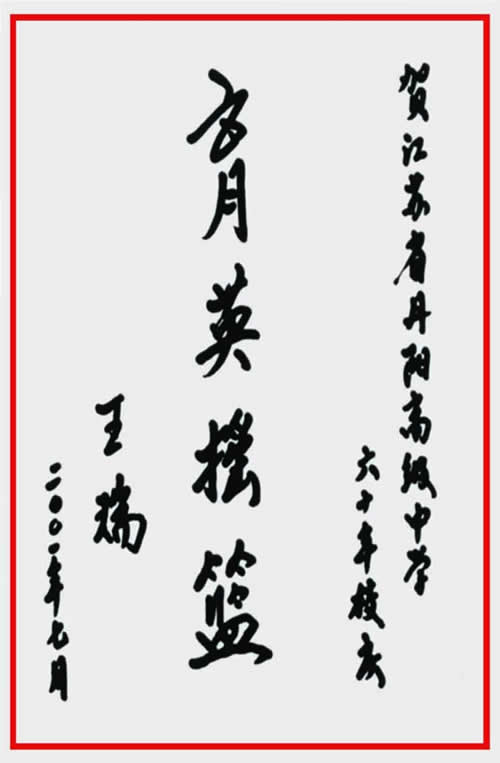 贺江苏省丹阳高级中学
六十年校庆
育英摇篮
王瑞
二〇〇一年七月